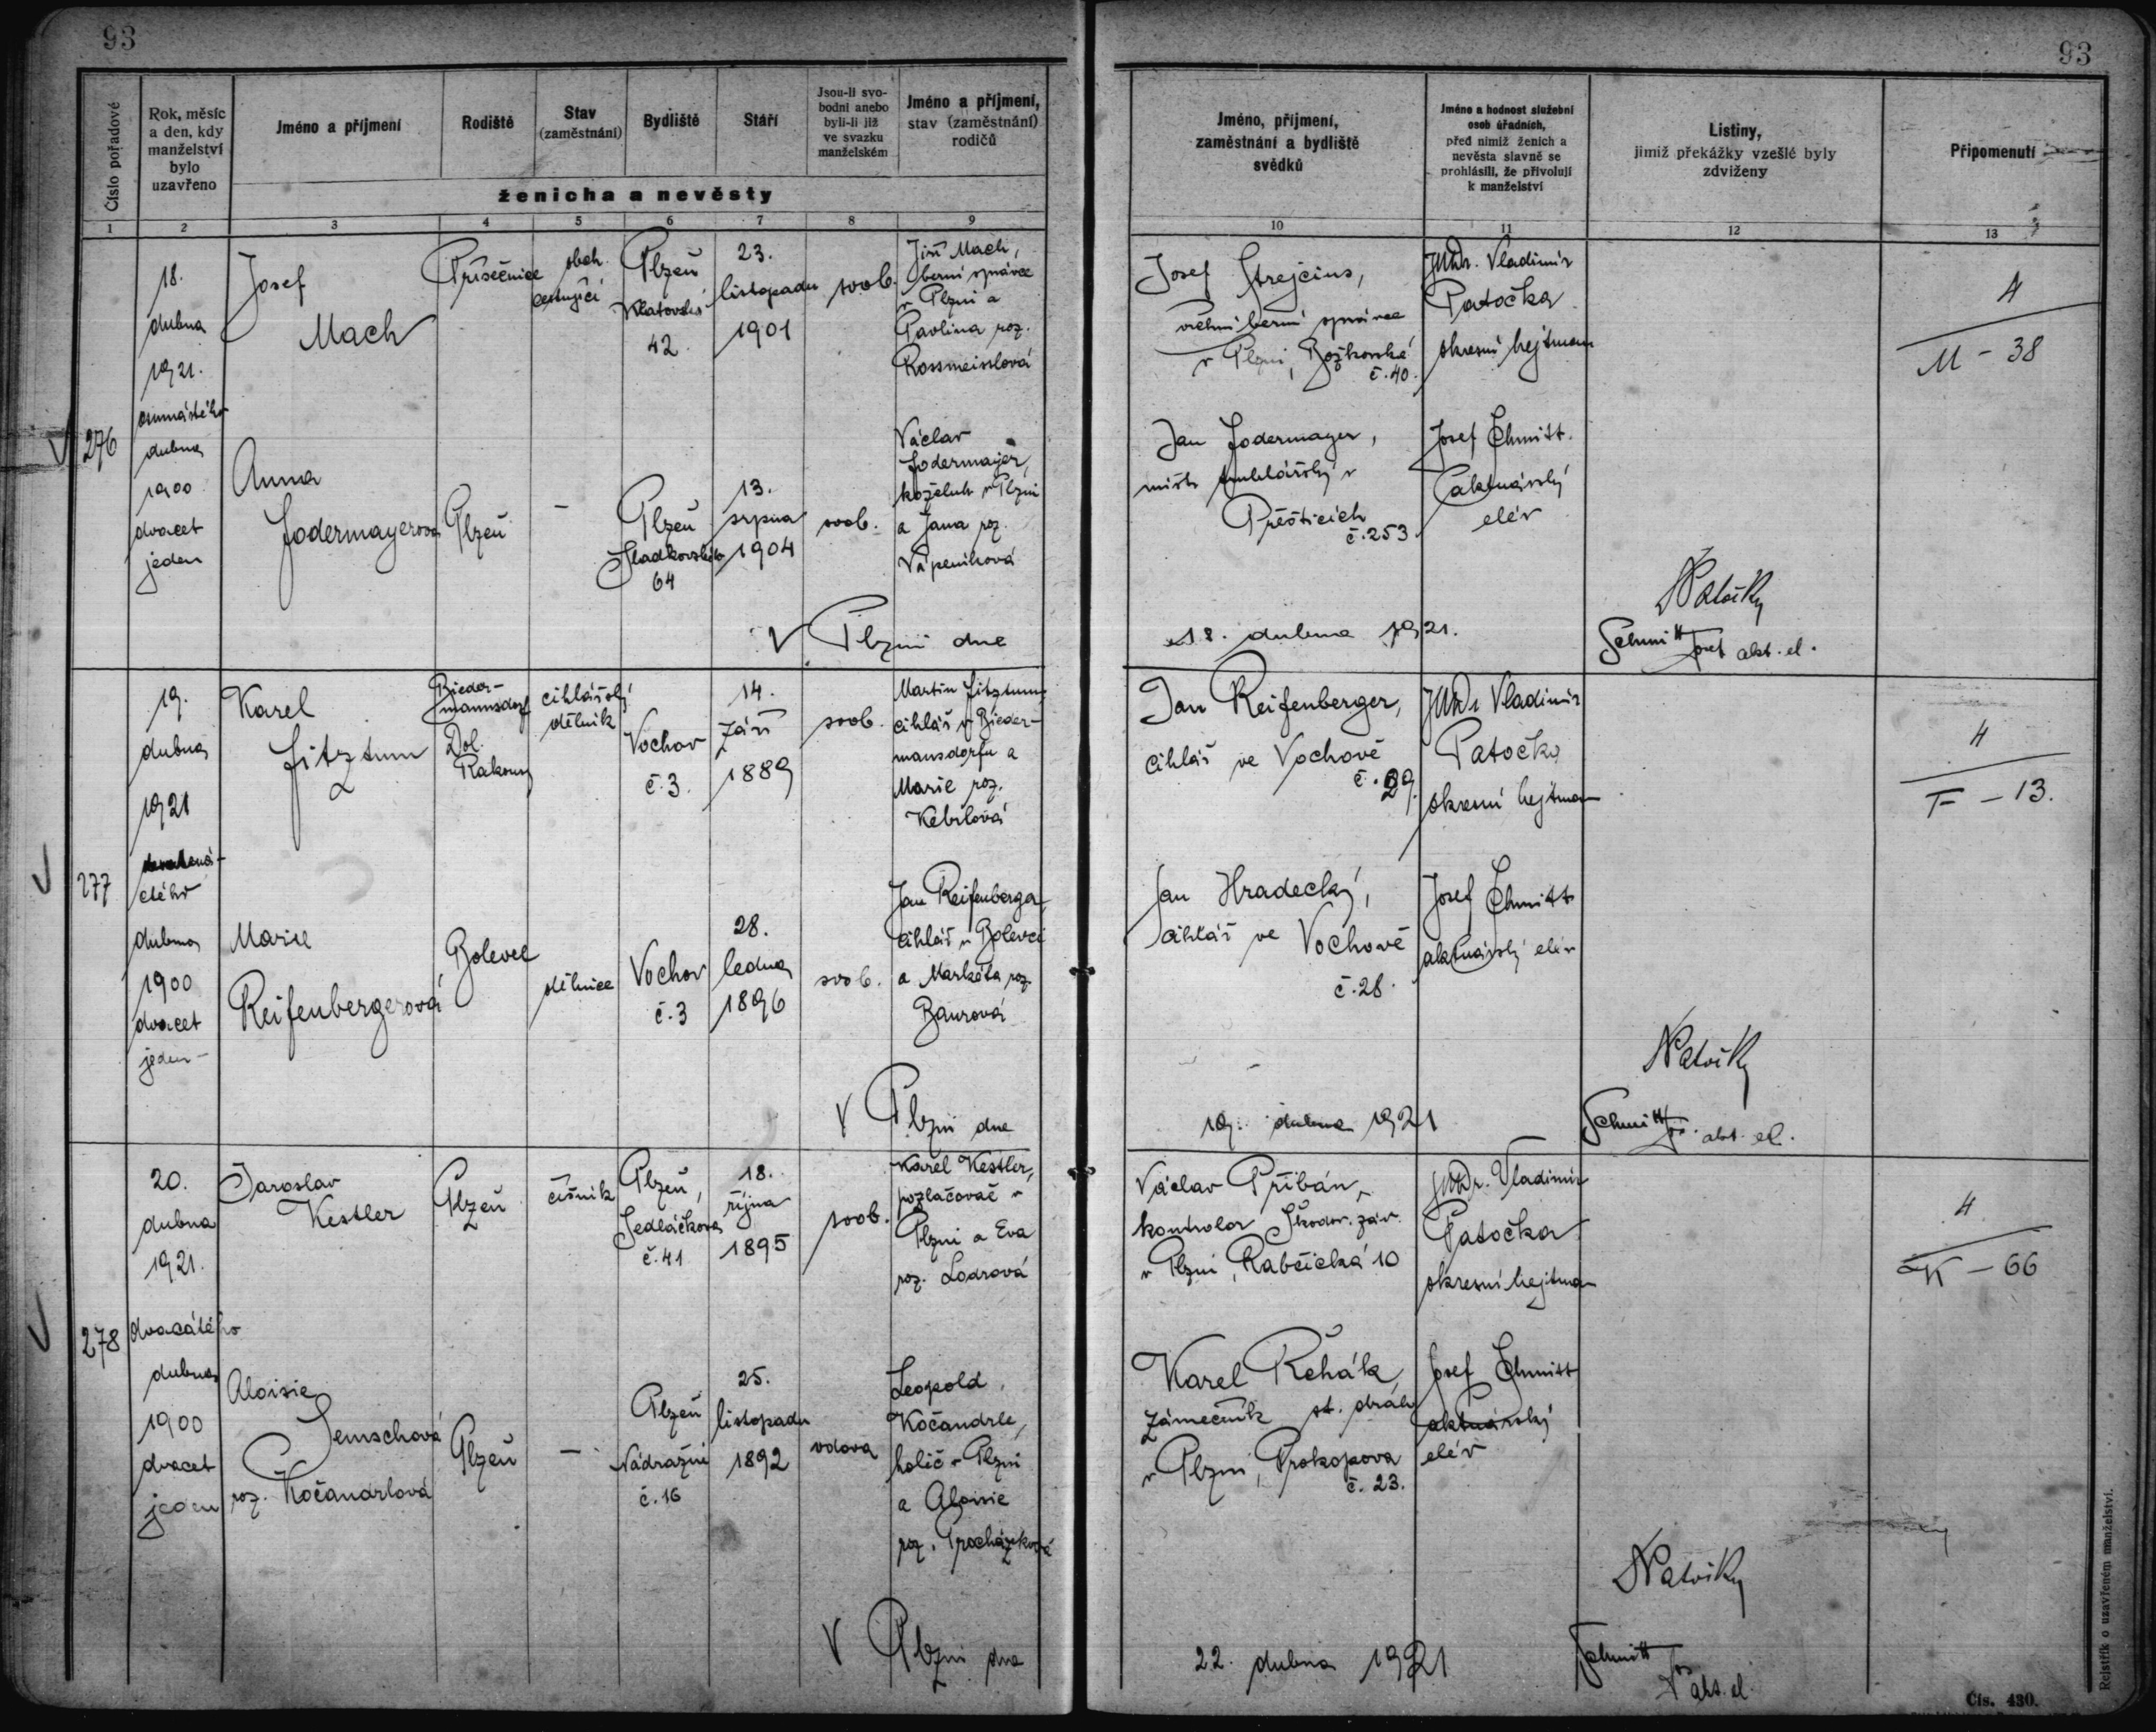 93
93
Číslo pořadové
Rok, měsíc
a den, kdy
manželství
bylo
uzavřeno
Jméno a příjmení
Rodiště
Stav
(zaměstnání)
Bydliště
Stáří
Jsou-li svo-
bodni anebo
byli-li již
ve svazku
manželském
Jméno a příjmení,
stav (zaměstnání)
rodičů
ženicha a nevěsty
1 2 3 4 5 6 7 8 9
Jméno, příjmení,
zaměstnání a bydliště
svědků
Jméno a hodnost služební
osob úřadních,
před nimiž ženich a
nevěsta slavně se
prohlásili, že přivolují
k manželství
Listiny,
jimiž překážky vzešlé byly
zdviženy
Připomenutí
10 11 12 13
276
18.
dubna
1921.
osmnáctého
dubna
1900
dvacet
jeden
Josef
Mach
Přísečnice
obch.
cestující
Plzeň
Klatovská
42.
23.
listopadu
1901
svob.
Jiří Mach,
berní správce
v Plzni a
Pavlina roz.
Rossmeislová
Anna
Fodermayerová
Plzeň
-
Plzeň
Sladkovského
64
13.
srpna
1904
svob.
Václav
Fodermajer,
koželuh v Plzni
a Jana roz.
Vápeníková
Josef Strejcius,
vrchní berní správce
v Plzni, Božkovská
č. 40.
Jan Fodermayer,
mistr truhlářský v
Přešticích
č. 253
JUDr. Vladimír
Patočka
okresní hejtman
Josef Schmitt
aktuárský
elév
4
M - 38
V Plzni dne
18. dubna 1921.
Schmitt Josef akt. el.
277
19.
dubna
1921
ctého
dubna
1900
dvacet
jeden -
Karel
Fitztum
Bieder-
mannsdorf
Dol.
Rakousy
cihlářský
dělník
Vochov
č. 3.
14.
září
1889
svob.
Martin Fitztum,
cihlář v Bieder-
mansdorfu a
Marie roz.
Marie
Reifenbergerová
Bolevec
dělnice
Vochov
č. 3
28.
ledna
1896
svob.
Jan Reifenberger,
cihlář v Bolevci
a Markéta roz.
Baurová
Jan Reifenberger,
cihlář ve Vochově
č. 29.
Jan Hradecký,
cihlář ve Vochově
č. 28.
JUDr Vladimír
Patočka
okresní hejtman
Josef Schmitt
aktuárský elév
4
F - 13.
V Plzni dne
19. dubna 1921
Schmitt Jos. akt. el.
278
20.
dubna
1921.
dvacátého
dubna
1900
dvacet
jeden
Jaroslav
Kestler
Plzeň
číšník
Plzeň,
Sedláčkova
č. 41
18.
října
1895
svob.
Karel Kestler,
pozlačovač v
Plzni a Eva
roz. Lodrová
Aloisie
Jemschová
roz. Kočandrlová
Plzeň
-
Plzeň
Nádražní
č. 16
25.
listopadu
1892
vdova
Leopold
Kočandrle,
holič v Plzni
a Aloisie
roz. Procházková
Václav Přibán,
kontrolor Škodov. záv.
v Plzni, Rabčická 10
Karel Řehák,
zámečník st. dráh
v Plzni, Prokopova
č. 23.
JUDr. Vladimír
Patočka
okresní hejtman
Josef Schmitt
aktuárský
elév
4
K - 66
V Plzni dne
22. dubna 1921
Schmitt
Jos akt. el.
Rejstřík o uzavřeném manželství.
Čís. 430.